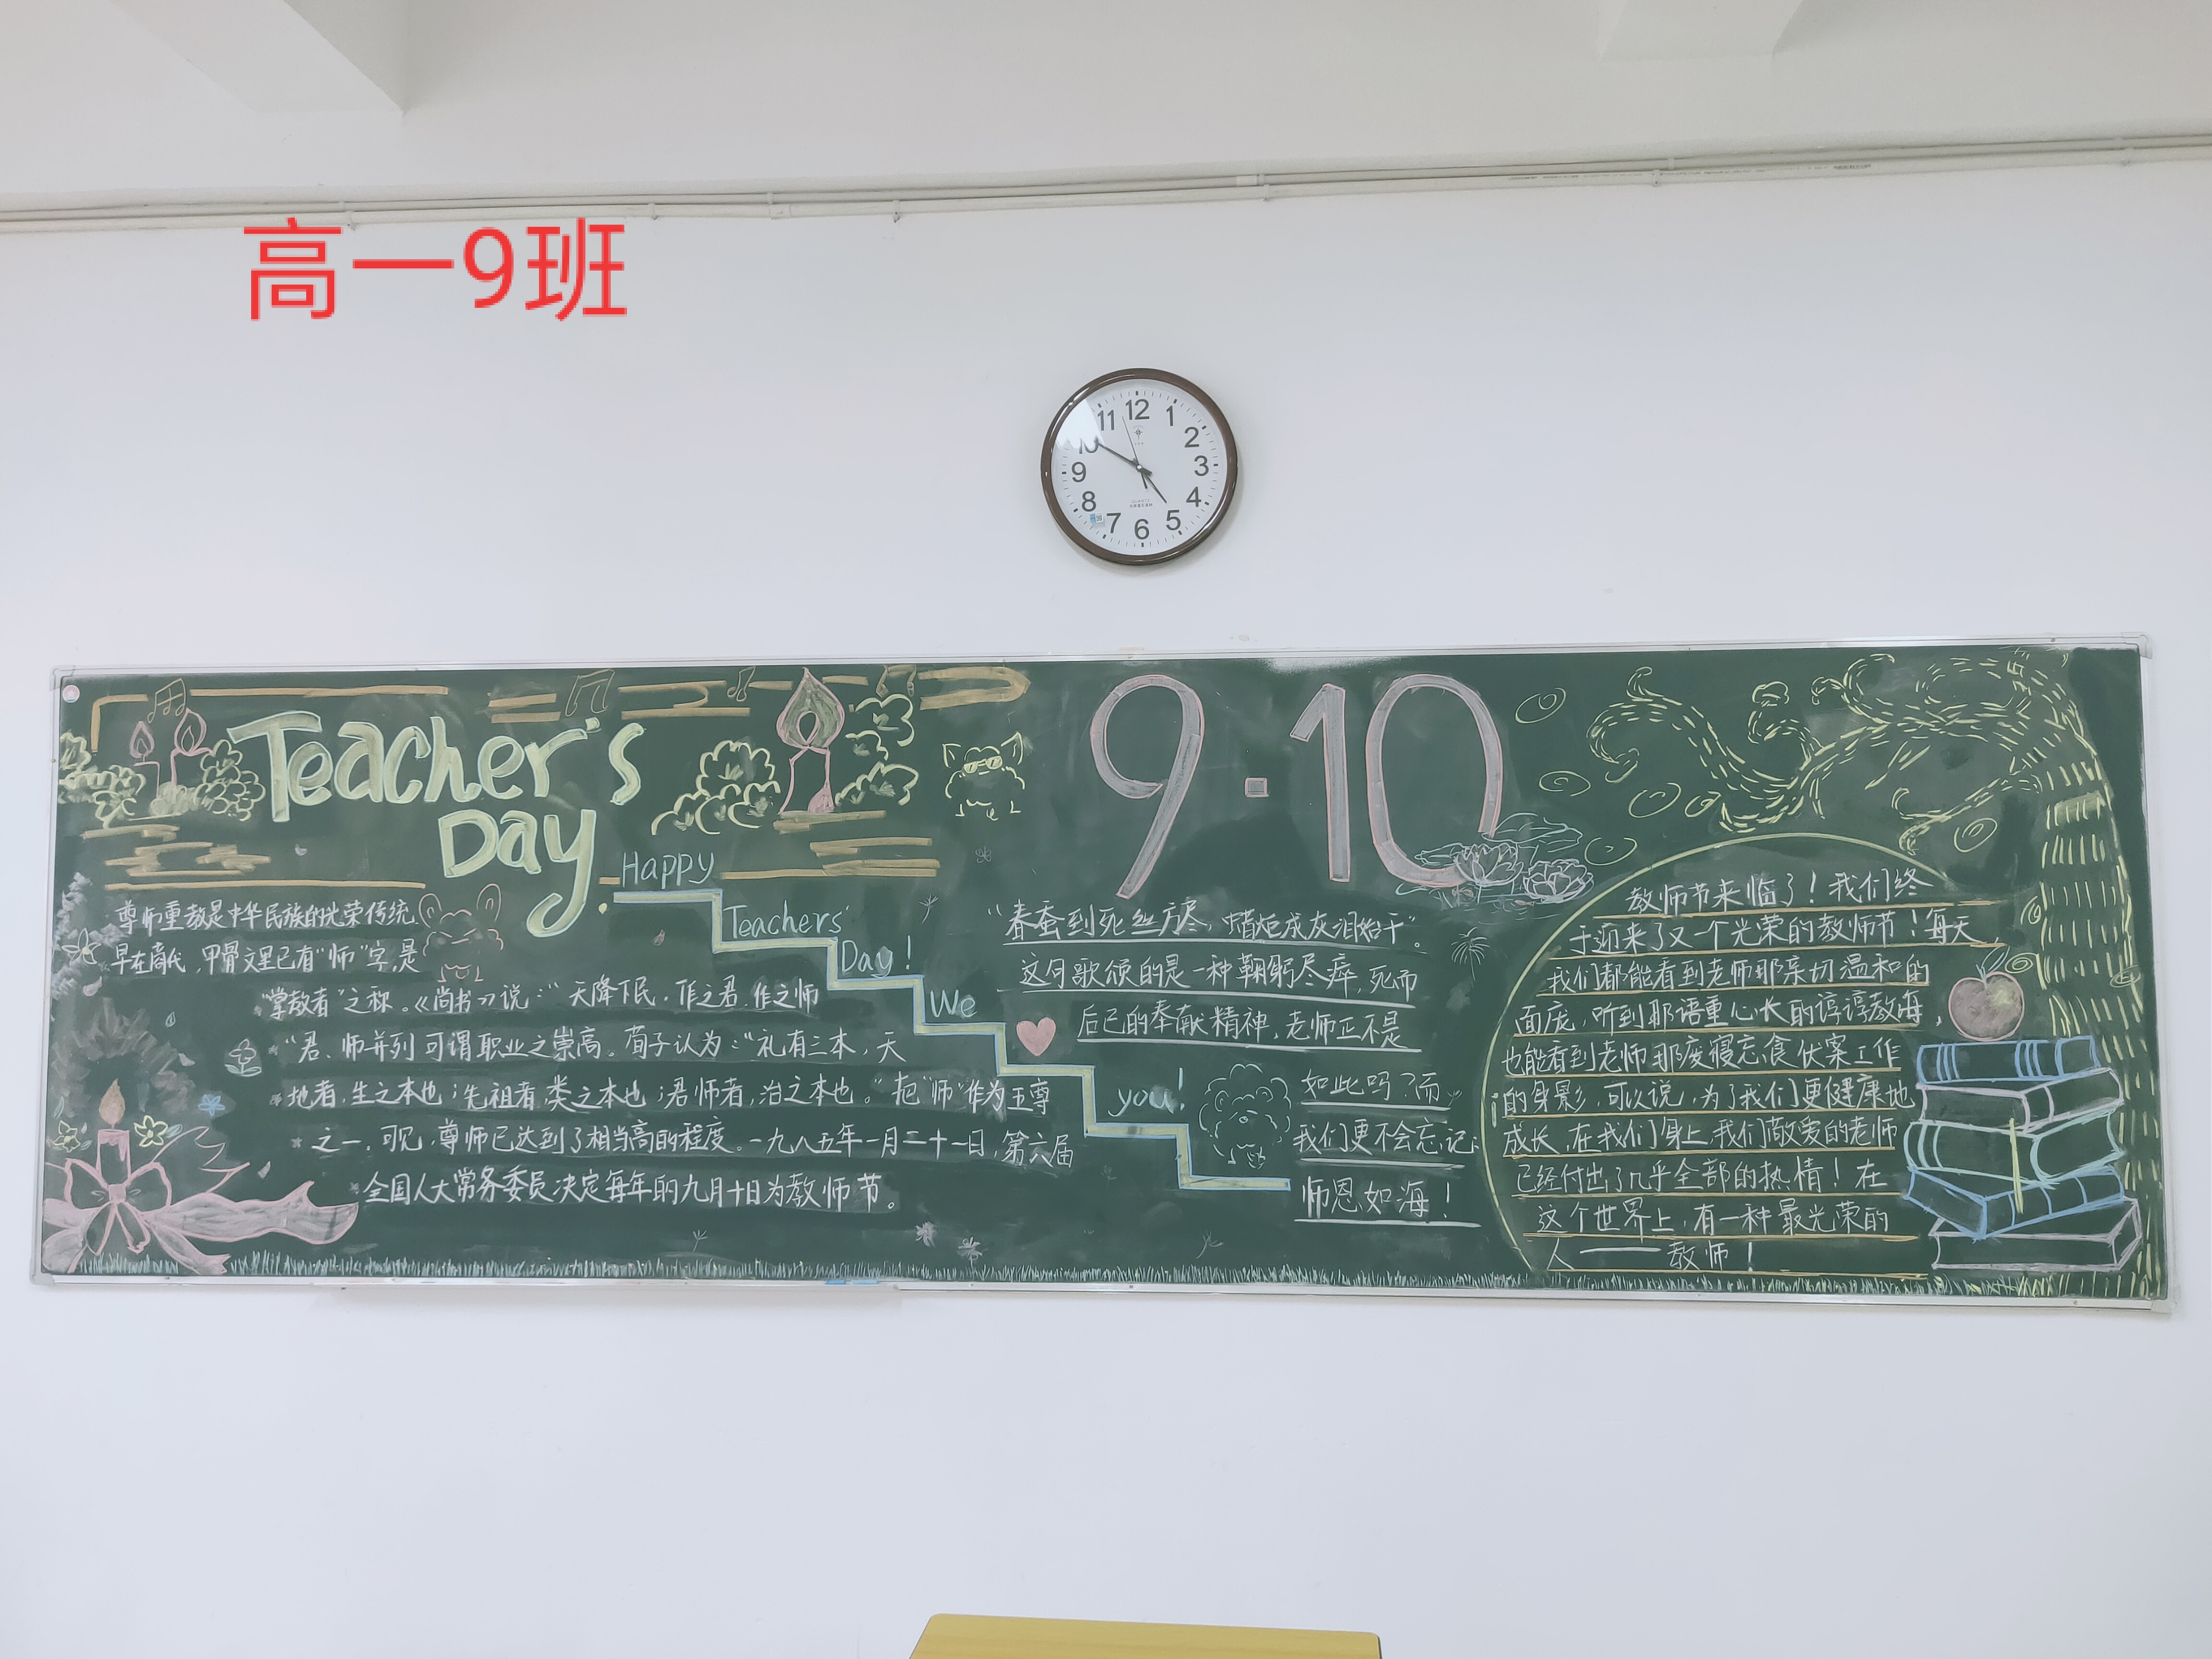 高一9班
12
1
2
3
4
5
6
7
8
9
10
11
Teacher's
Day
Happy
Teachers'
Day!
We
you!
9·10
尊师重教是中华民族的光荣传统
早在商代,甲骨文里已有"师"字,是
"掌教者"之称。《尚书》说:"天降下民,作之君 作之师
"君、师并列可谓职业之崇高。荀子认为:"礼有三本,天
地者,生之本也;先祖者,类之本也;君师者,治之本也。"把"师"作为五尊
之一,可见,尊师已达到了相当高的程度。一九八五年一月二十一日,第六届
全国人大常务委员决定每年的九月十日为教师节。
"春蚕到死丝方尽,蜡炬成灰泪始干"。
这句歌颂的是一种鞠躬尽瘁,死而
后已的奉献精神,老师正不是
如此吗?而
我们更不会忘记:
师恩如海!
教师节来临了!我们终
于迎来了又一个光荣的教师节!每天,
我们都能看到老师那亲切温和的
面庞,听到那语重心长的谆谆教诲,
也能看到老师那废寝忘食伏案工作
的身影,可以说,为了我们更健康地
成长,在我们身上,我们敬爱的老师
已经付出了几乎全部的热情!在
这个世界上,有一种最光荣的
人——教师!